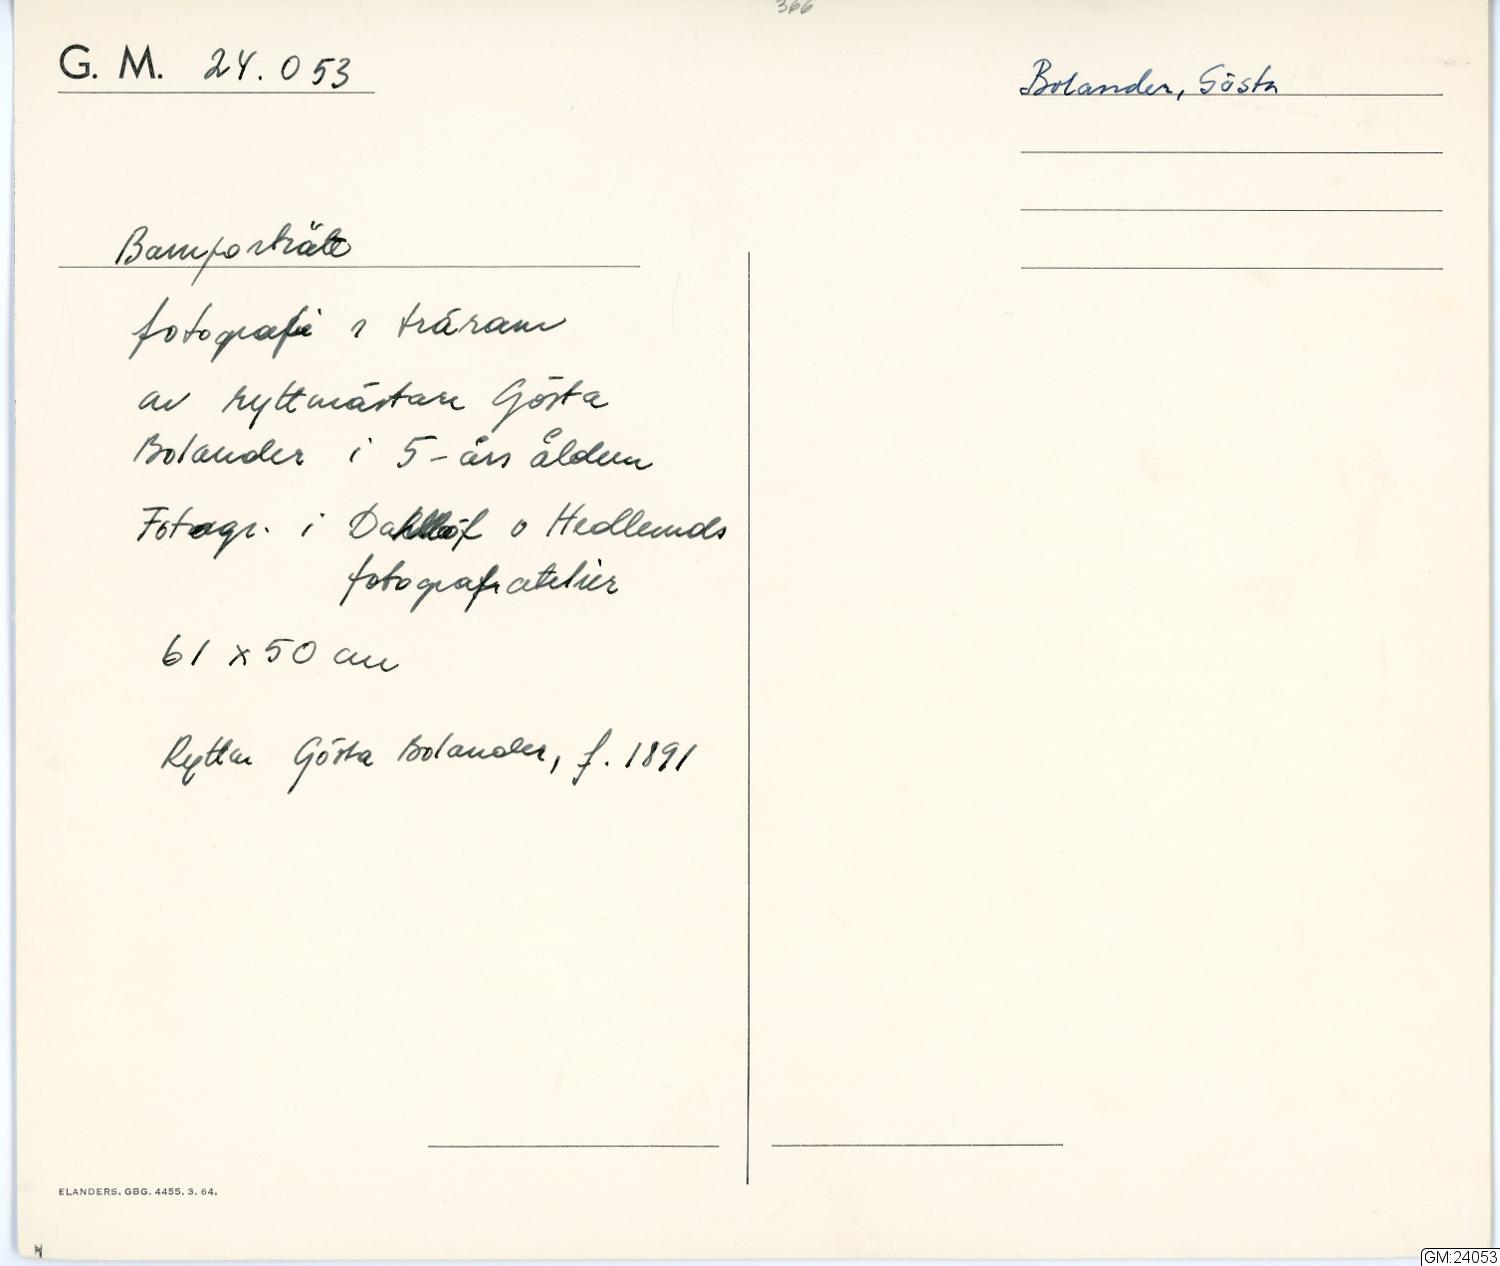 366
G. M. 24.053
Bolander, Gösta
Barnporträtt
fotografi i träram
av ryttmästare Gösta
Bolander i 5-års åldern
Fotogr. i Dahllöf o Hedlunds
fotografiatelier
61 x 50 cm
Ryttm Gösta Bolander, f. 1891
ELANDERS. GBG. 4455. 3. 64.
GM:24053